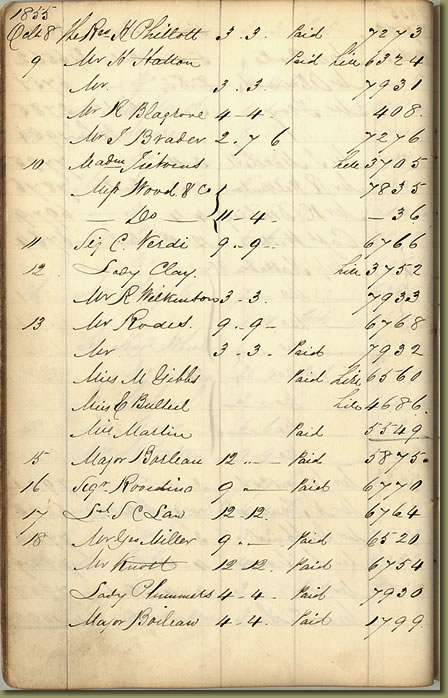 1855
Octr 8 The Rev H Phillott 3 . 3 . Paid 7273
9 Mr H Hatton Paid Hire 6324
Mr. 3 . 3 . 7931
Mr R Blagrove 4 - 4 . 408 .
Mr J Brader 2 . 7 6 7276
10 Madm Hire 3705
Miss Wood & Co 7835
— Do — 11 - 4 . — 36
11 Sig C. Verdi 9 . 9 . 6766
12 Lady Clay. Hire 3752
Mr R Wilkinson 3 . 3 . 7933
13 Mr Rodes. 9 . 9 - 6768
Mr 3 . 3 . Paid 7932
Miss M Gibbs Paid Hire 6560
Miss E Bulteel Hire 4686.
Miss Martin Paid 5549
15 Major 12 .. — Paid 5875
16 Segr 9 . — Paid 6770
17 S C Law 12 . 12 . 6764
18 Mr Geo Miller 9 . — Paid 6520
Mr Knott 12 . 12 . Paid 6754
Lady Plummets 4 - 4 . Paid 7930
Major Boileau 4 - 4 . Paid 1799